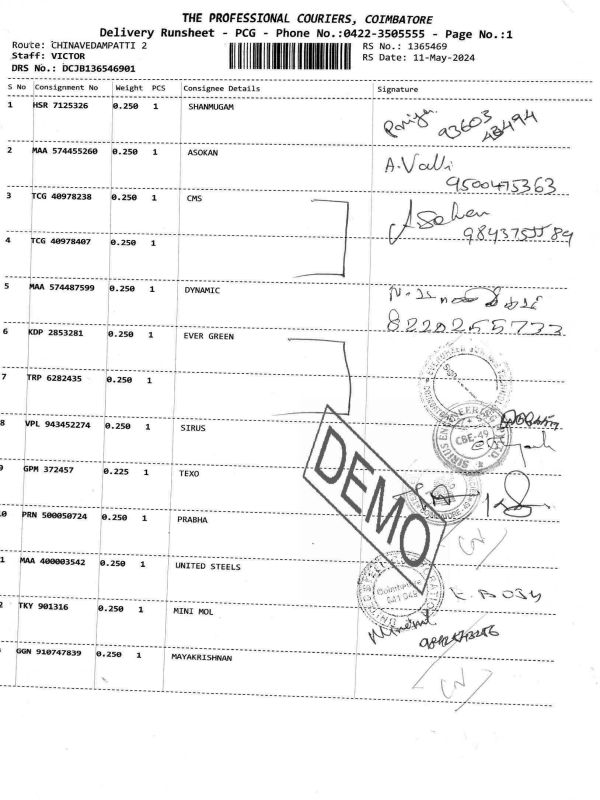 THE PROFESSIONAL COURIERS, COIMBATORE
Delivery Runsheet - PCG - Phone No.:0422-3505555 - Page No.:1
Route: CHINAVEDAMPATTI 2
RS No.: 1365469
Staff: VICTOR
RS Date: 11-May-2024
DRS No.: DCJB136546901
S No Consignment No Weight PCS Consignee Details Signature
1 HSR 7125326 0.250 1 SHANMUGAM
93603
43494
2 MAA 574455260 0.250 1 ASOKAN
A.Valli
9500475363
3 TCG 40978238 0.250 1 CMS
9843755589
4 TCG 40978407 0.250 1
5 MAA 574487599 0.250 1 DYNAMIC
8220255733
6 KDP 2853281 0.250 1 EVER GREEN
7 TRP 6282435 0.250 1
8 VPL 943452274 0.250 1 SIRUS
CBE-49
9 GPM 372457 0.225 1 TEXO
DEMO
0 PRN 500050724 0.250 1 PRABHA
1 MAA 400003542 0.250 1 UNITED STEELS
Coimbatore
641 049
2 TKY 901316 0.250 1 MINI MOL
GGN 910747839 0.250 1 MAYAKRISHNAN